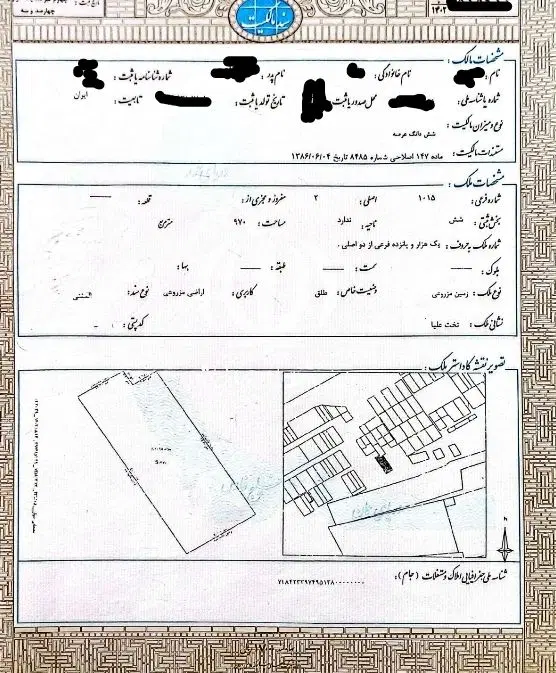 چهارصد و سه
۱۴۰۲
سند مالکیت
مشخصات مالک :
نام : نام خانوادگی : نام پدر : شماره شناسنامه یا ثبت :
شماره یا شناسه ملی : محل صدور یا ثبت : تاریخ تولد یا ثبت : تابعیت : ایران
نوع و میزان مالکیت : شش دانگ عرصه
مستندات مالکیت : ماده ۱۴۷ اصلاحی شماره ۸۴۸۵ تاریخ ۱۳۸۶/۰۶/۰۴
مشخصات ملک :
شماره فرعی : ۱۰۱۵ اصلی : ۲ مفروز و مجزی از : قطعه :
بخش ثبتی : شش ناحیه : ندارد مساحت : ۹۷۰ مترمربع
شماره ملک به حروف : یک هزار و پانزده فرعی از دو اصلی .
بلوک : سمت : طبقه : بها :
نوع ملک : زمین مزروعی وضعیت خاص : طلق کاربری : اراضی مزروعی نوع سند : المثنی
نشانی ملک : تخت علیا کدپستی :
تصویر نقشه کاداستر ملک :
شناسه ملی جغرافیایی املاک و مستغلات (جام) :